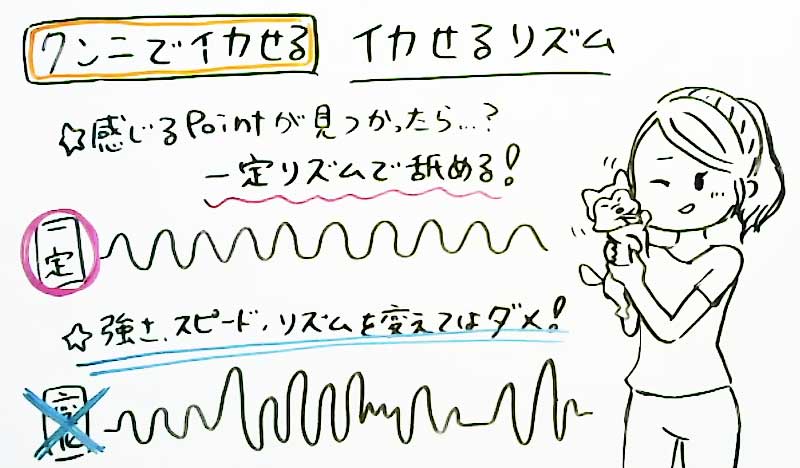 クンニでイカせる
イカせるリズム
☆感じるPointが見つかったら…?
一定リズムで舐める!
一定
☆強さ、スピード、リズムを変えてはダメ!
変化